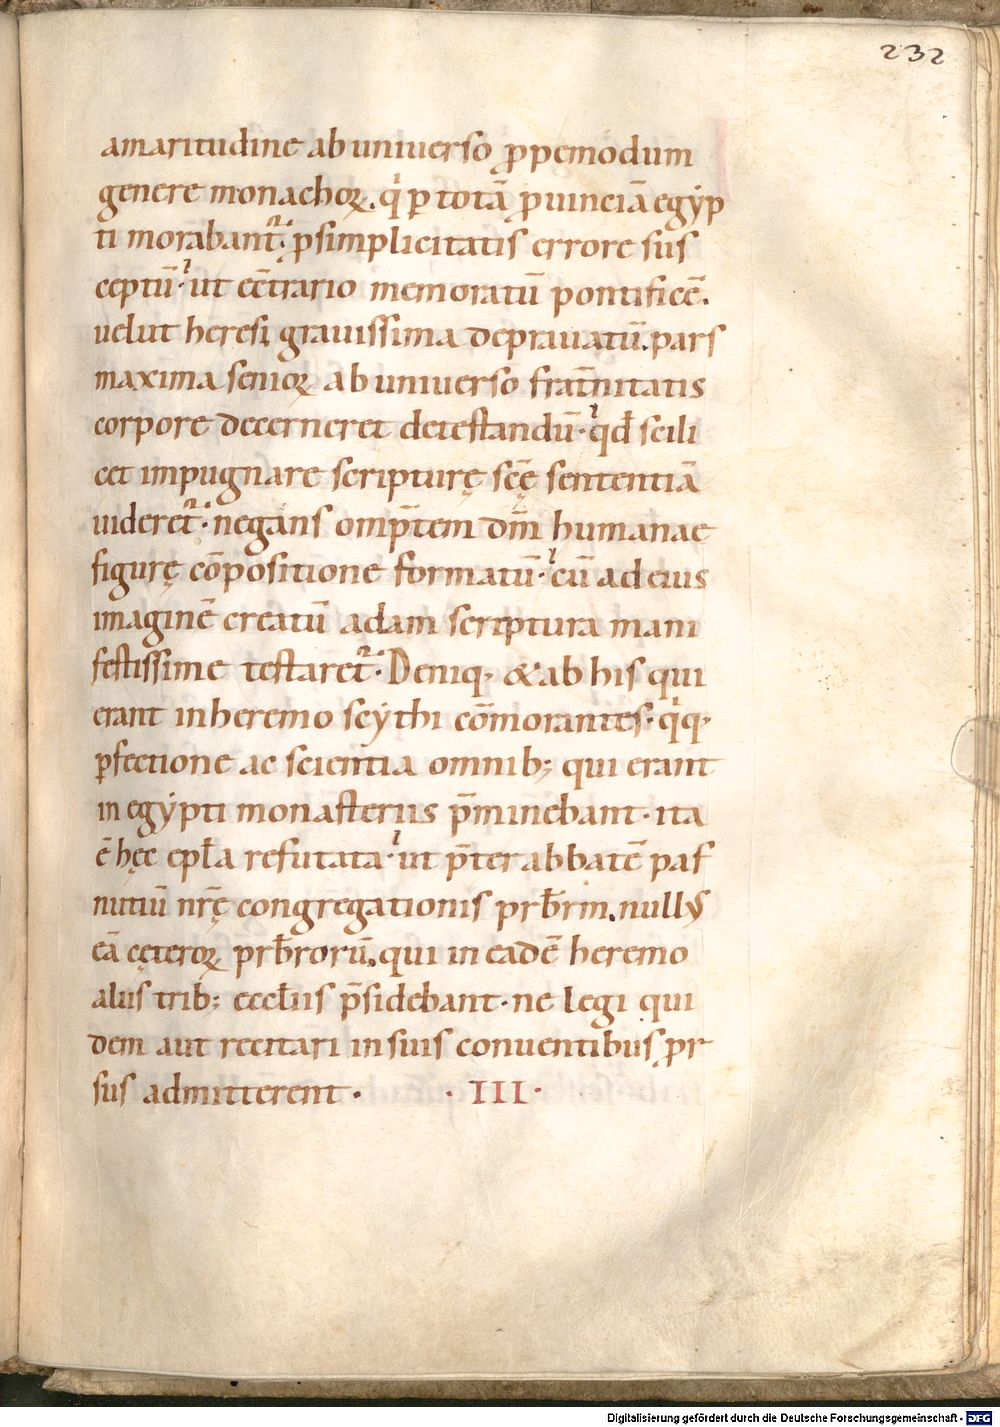 232
amaritudine ab uniuerso ꝓpemodum
genere monachoꝝ. q̇ ꝑ totā ꝓuinciā egẏp
ti morabant᷑. ꝓ simplicitatis errore sus
ceptū· ut ec̄trario memoratū pontificē.
uelut heresi grauissima deprauatū. pars
maxima senioꝝ ab uniuerso frat̄nitatis
corpore decerneret detestandū· qd̄ scili
cet impugnare scripturę scę̄ sententiā
uideret᷑· negans omp̄tem dm̄ humanae
figurę cōpositione formatū· cū ad eius
imaginē creatū adam scriptura mani
festissime testaret᷑· Deniq· & ab his qui
erant in heremo scythi cōmorantes· q̇q·
ꝑfectione ac scientia omnib; qui erant
in egẏpti monasteriis p̄minebant· ita
ē hęc epła refutata· ut p̄ter abbatē paf
nutiū nr̄ę congregationis prb̄rm. nullus
eā cęteroꝝ prb̄rorū. qui in eadē heremo
aliis trib; eccłiis p̄sidebant· ne legi qui
dem aut recitari in suis conuentibus ꝓr
sus admitterent · · III ·
Digitalisierung gefördert durch die Deutsche Forschungsgemeinschaft - DFG